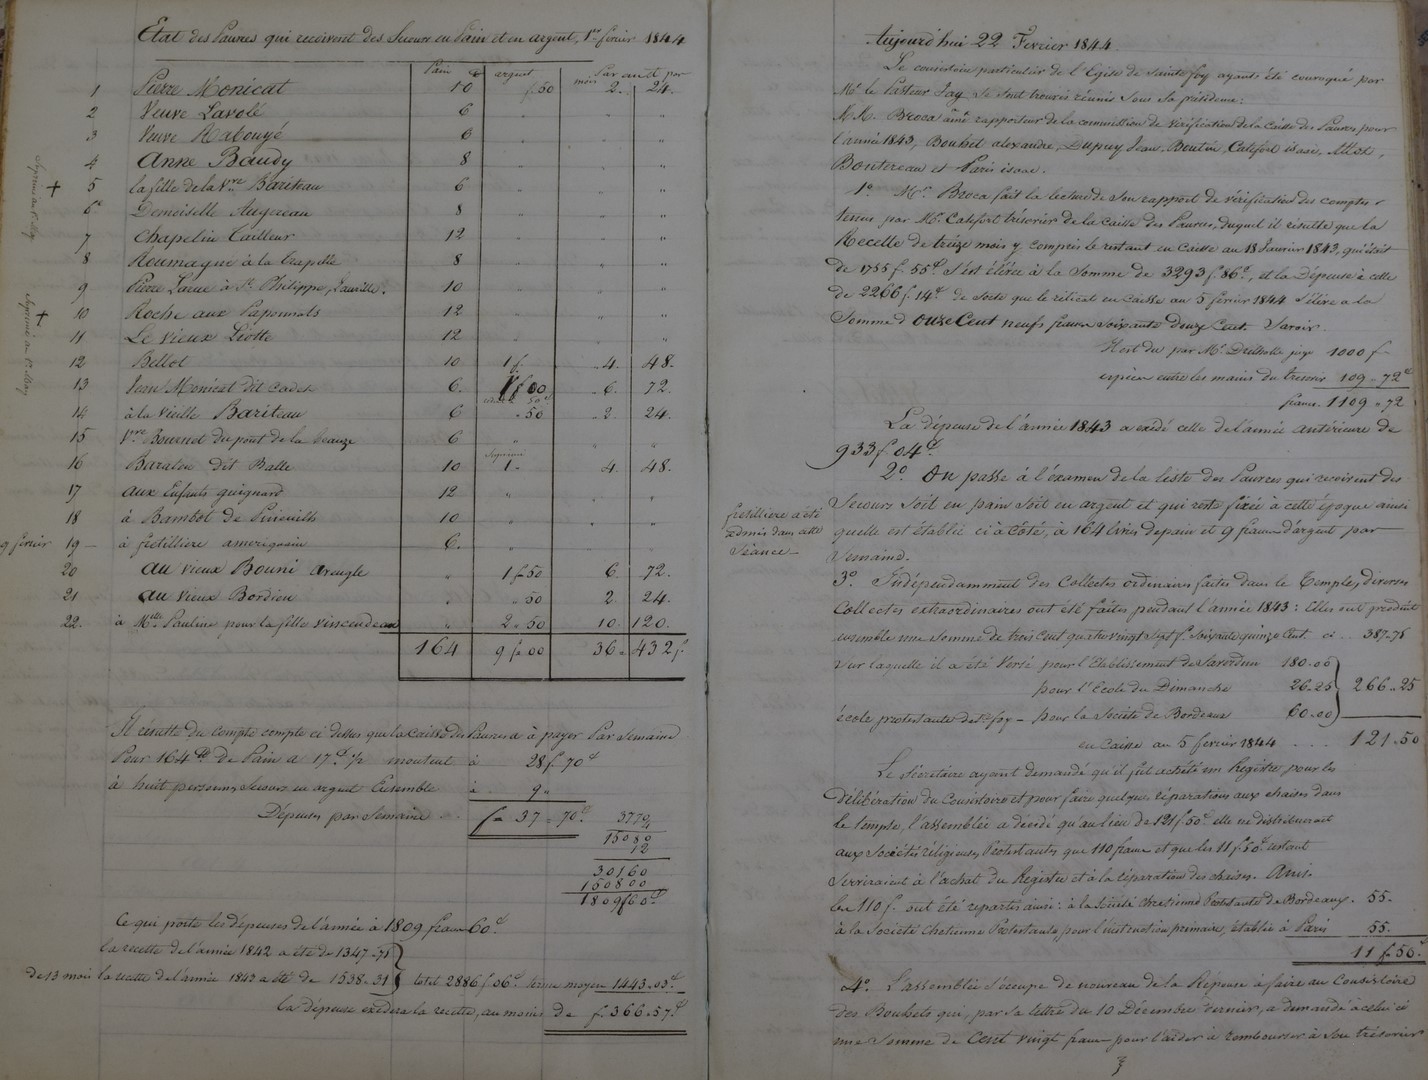 Etat des Pauvres qui recoivent des Secours en Pain et en argent, 1er fevrier 1844
Pain argent Par an
mois
1 Pierre Monicat 10 f. 50 2. 24.
2 Veuve Lavolé 6 " "
3 Veuve Rabouyé 6 " "
4 Anne Baudy 8 " "
5 la fille de la Vve Bariteau 6 " "
6 Demoiselle Augereau 8 " "
7 Chapelin tailleur 12 " "
8 Roumague à la Chapelle 8 " "
9 Pierre à St Philippe 10 " "
10 Roche aux 12 " "
11 Le vieux Liotte 12 "
12 Bellot 10 1 f. 4. 48.
13 Jean Monicat dit Cadet 6. 1 f 00 6. 72.
14 à la vieille Bariteau 6 " 50 2. 24.
15 Vve Bournet du pont de la beauze 6 " "
16 Baralon dit Balle 10 1 - 4. 48.
17 aux Enfants guignard 12 " "
18 à Bambot de Pineuilh 10 " "
9 fevrier 19 - à festilliere ameriquain 6. "
20 au vieux Bouni aveugle " 1 f 50 6. 72.
21 au vieux Bordieu " " 50 2. 24.
22. à Mlle Pauline pour la fille vinscendeau " 2 " 50 10. 120.
164 9 f 00 36 " 432 f.
Il résulte du compte compte ci dessus que la caisse des Pauvres a à payer Par Semaine
Pour 164 lb de Pain a 17 c 1/2 montent à 28 f 70 c
à huit personnes Secours en argent Ensemble à 9 "
Dépenses par Semaine f 37 " 70 c
3770
4
15080
12
30160
150800
1809f60c
Ce qui porte les dépenses de l'année à 1809 francs 60 c.
La recette de l'année 1842 a été de 1347-75
de 13 mois la recette de l'année 1843 a été de 1538-31 total 2886 f 06 c terme moyen 1443-03 c
La dépense exédera la recette, au moins de f. 366-57 c
Aujourd'hui 22 Fevrier 1844
Le consistoire particulier de l'Eglise de Sainte foy ayant été convoqué par
Mr le Pasteur Jay se sont trouvés réunis sous sa présidence:
M.M. Broca ainé rapporteur de la commission de vérification de la caisse des Pauvres pour
l'année 1843, Bouhet alexandre, Dupuy Jean, Boutin, Calefort isaac,
Boutereau et Paris isaac.
1o Mr Broca fait la lecture de son rapport de vérification des comptes
tenus par Mr Calefort trésorier de la caisse des Pauvres, duquel il résulte que la
Recette de treize mois y compris le restant en Caisse au 18 Janvier 1843, qui était
de 1755 f. 55 c. s'est élévée à la Somme de 3293 f. 86 c, et la Dépense à celle
de 2266 f. 14 c. de sorte que le relicat en caisse au 5 fevrier 1844 s'élève a la
Somme d'onze Cent neufs francs soixante douze Cent. Savoir.
Il est du par Mr juge 1000 f -
espèces entre les mains du tresorier 109-72 c
francs. 1109-72
La dépense de l'année 1843 a exédé celle de l'année antérieure de
933 f 04 c.
2o On passe à l'éxamen de la liste des Pauvres qui recoivent des
Secours soit en pain soit en argent et qui reste fixée à cette époque ainsi
quelle est établie ci à côté, à 164 livres de pain et 9 francs d'argent par
Semaine.
festilliere a été
admis dans cette
Séance -
3o Indépendamment des Collectes ordinaires faites dans le Temple, diverses
Collectes extraordinaires ont été faites pendant l'année 1843: Elles ont produit
ensemble une somme de trois Cent quatre vingt Sept f. Soixante quinze Cent. ci 387-75
sur laquelle il a été versé pour l'Etablissement de Saverdun 180-00
pour l'Ecole du Dimanche 26-25 266-25
école protestante de Ste foy - pour la Societé de Bordeaux 60-00
en caisse au 5 fevrier 1844 ... 121-50
Le Sécretaire ayant demandé qu'il fut acheté un Registre pour les
Délibération du Consistoire et pour faire quelques réparations aux chaises dans
le temple, l'assemblée a décidé qu'au lieu de 121 f 50 c elle ne distribuerait
aux Sociétés réligieuses Protestantes que 110 francs et que les 11 f 50 c. restant
Serviraient à l'achat du Registre et à la réparation des chaises. Ainsi
les 110 f. ont été repartis ainsi: à la Société chretienne Protestante de Bordeaux. 55-
à la Societé Chetienne Protestante pour l'instruction primaire, établie à Paris 55-
11 f-50 c
4o. L'assemblée s'occupe de nouveau de la Réponse à faire au Consistoire
des Bouhets qui, par sa lettre du 10 Décembre dernier, a demandé à celui ci
une Somme de Cent vingt francs pour l'aider à rembourser à son trésorier